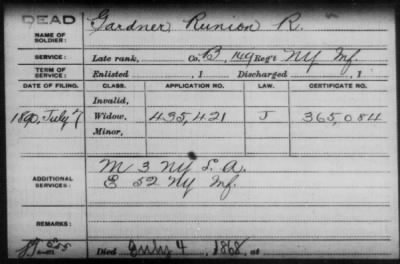 DEAD
Gardner Runion R.
NAME OF SOLDIER:
SERVICE: Late rank, Co. B, 149 Reg't NY Inf.
TERM OF SERVICE: Enlisted , 1 Discharged , 1
DATE OF FILING. CLASS. APPLICATION NO. LAW. CERTIFICATE NO.
Invalid,
1890, July 7 Widow, 435,421 J 365,084
Minor,
ADDITIONAL SERVICES: M 3 NY L. A.
E 52 NY Inf.
REMARKS:
Died July 4, 1868, at